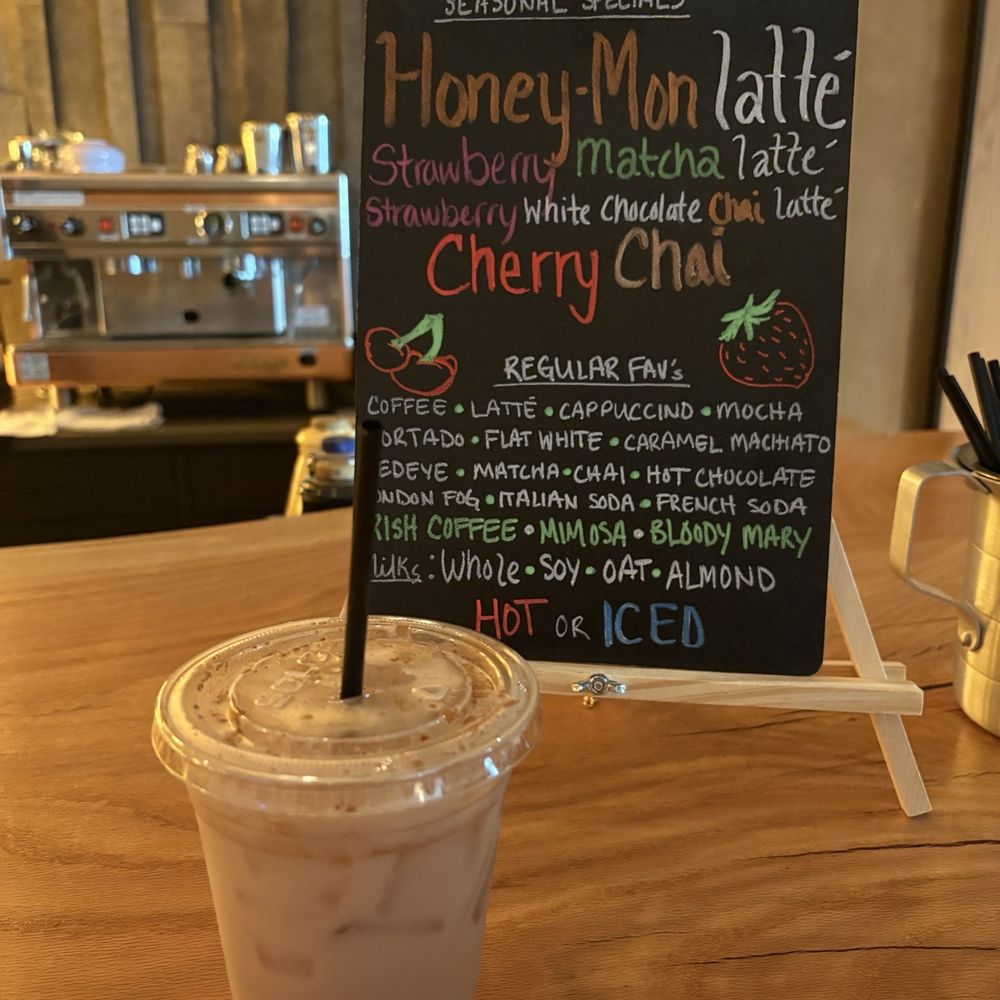 SEASONAL SPECIALS
Honey-Mon latté
Strawberry Matcha latté
Strawberry White Chocolate Chai latté
Cherry Chai
REGULAR FAV's
COFFEE • LATTÉ • CAPPUCCINO • MOCHA
ORTADO • FLAT WHITE • CARAMEL MACHIATO
EDEYE • MATCHA • CHAI • HOT CHOCOLATE
ONDON FOG • ITALIAN SODA • FRENCH SODA
RISH COFFEE • MIMOSA • BLOODY MARY
Milks: Whole • SOY • OAT • ALMOND
HOT OR ICED